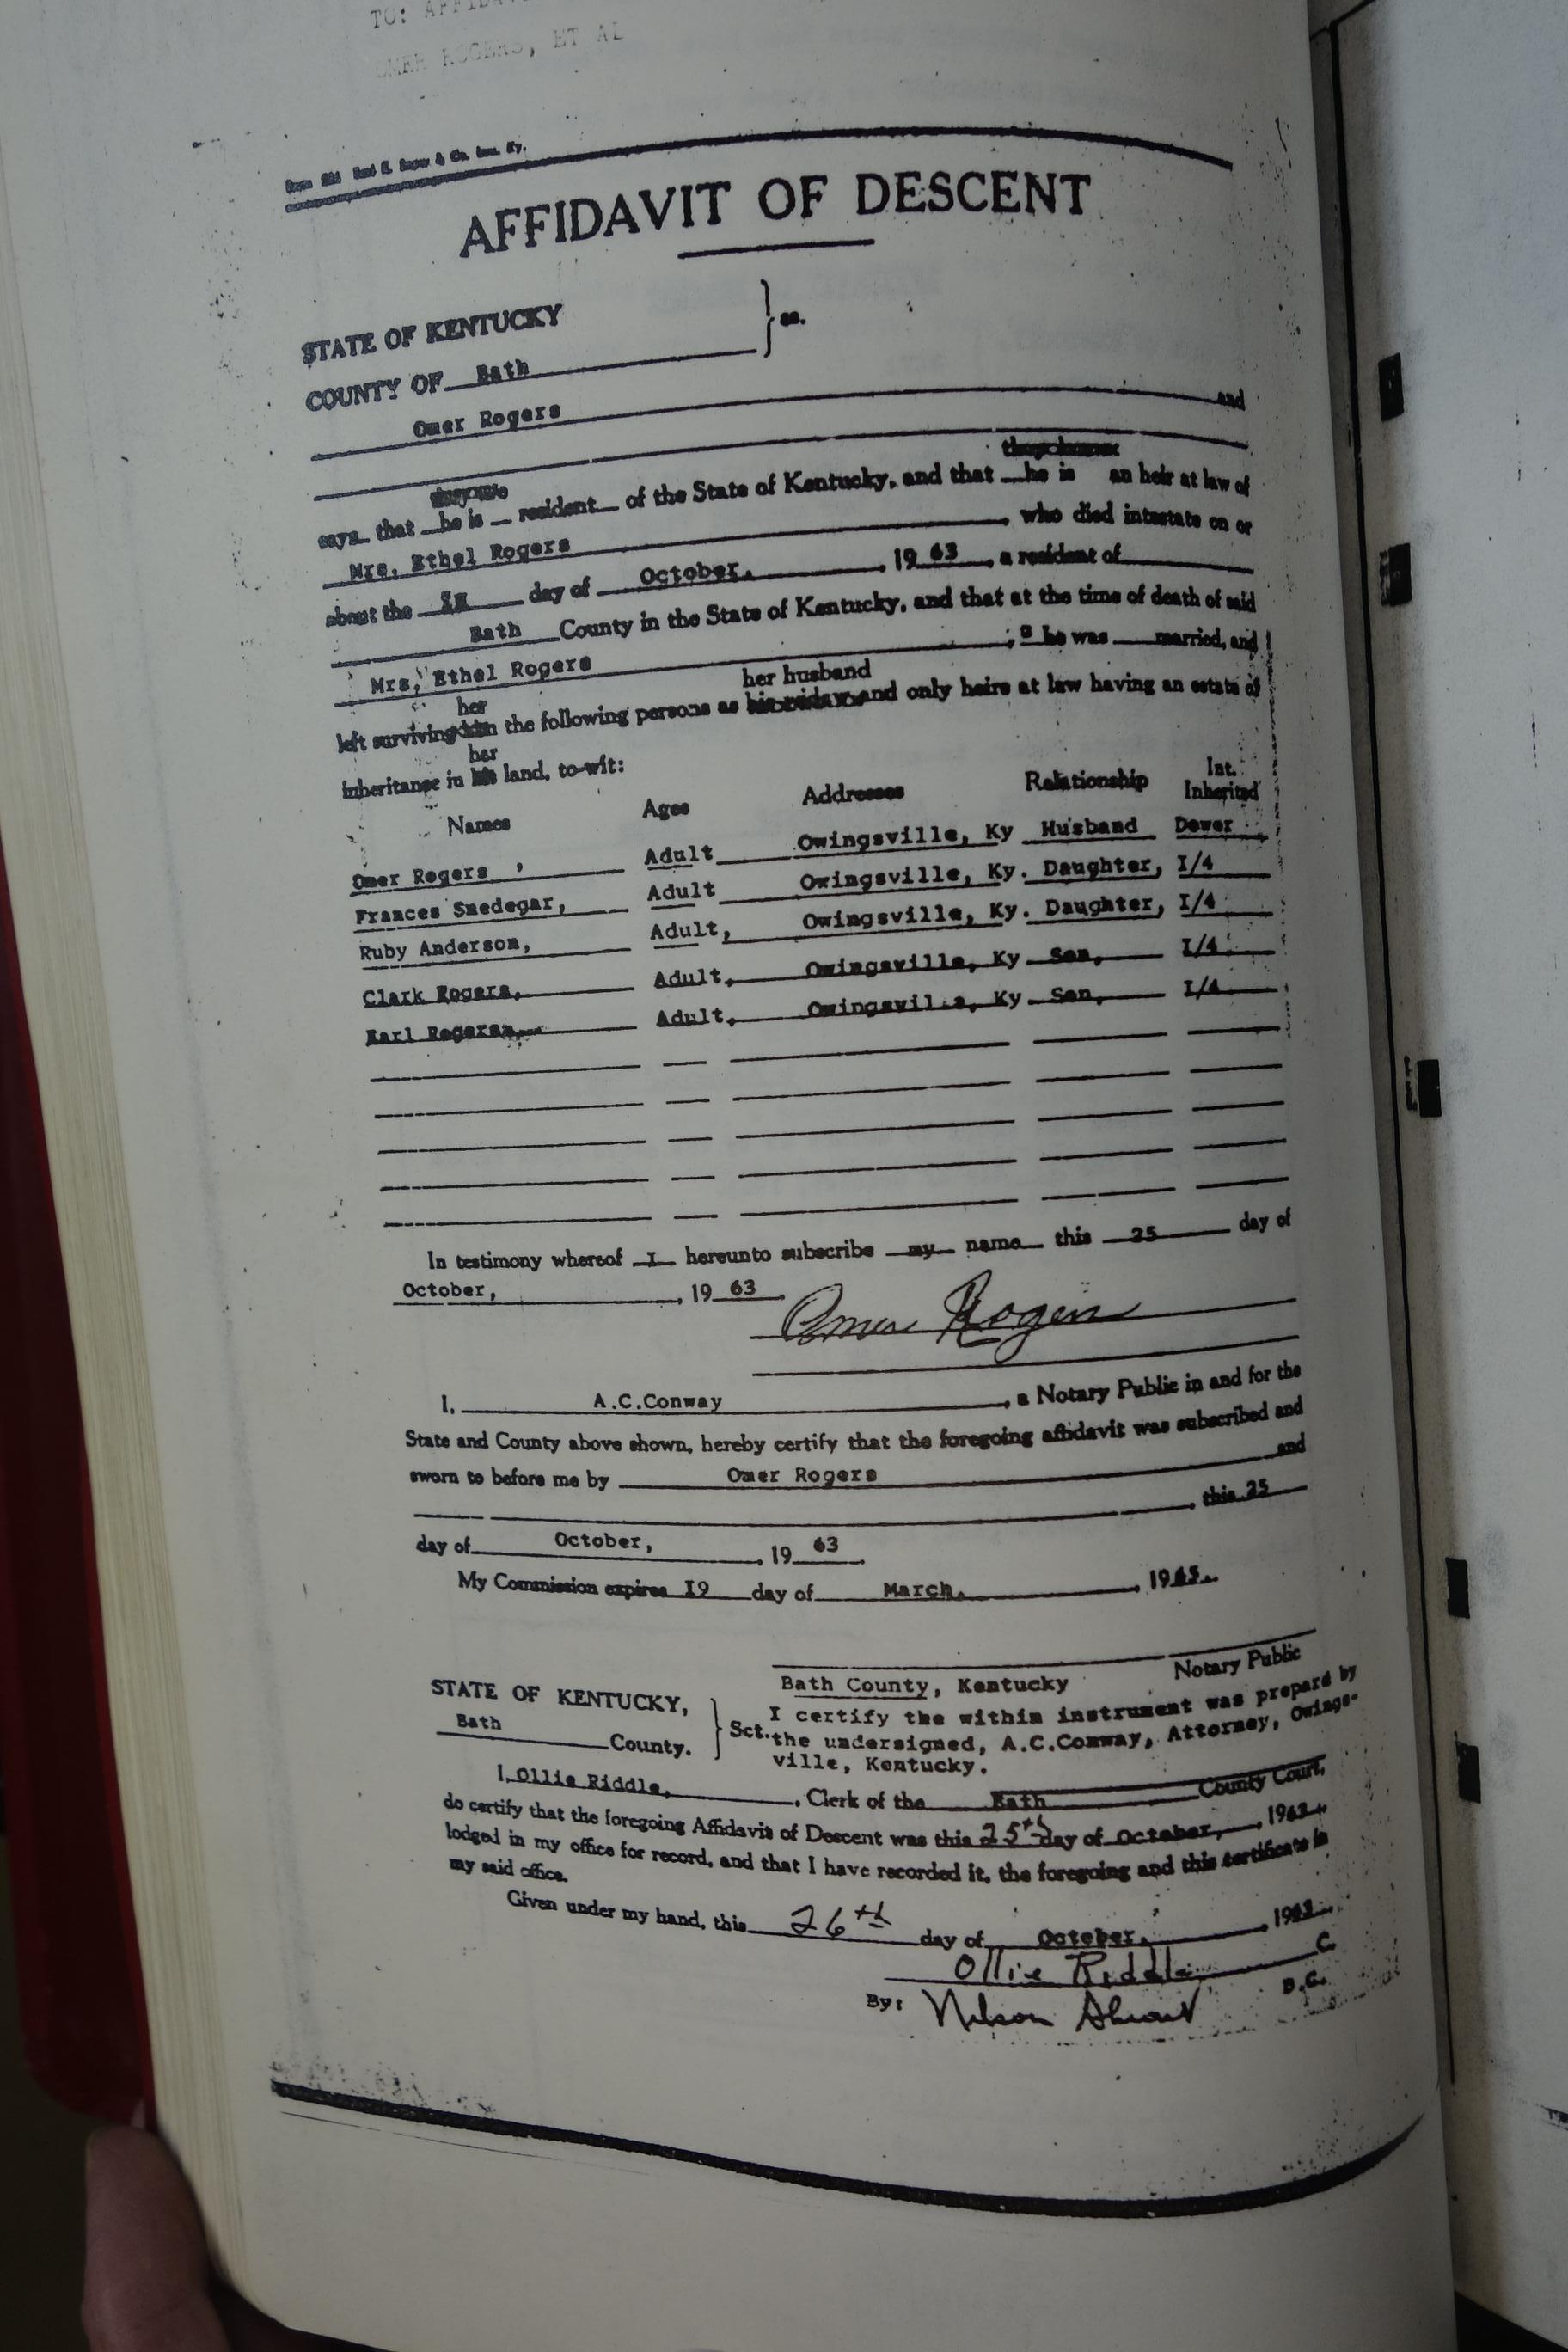 TO:
OMER ROGERS, ET AL
AFFIDAVIT OF DESCENT
STATE OF KENTUCKY } ss.
COUNTY OF Bath
Omer Rogers and
says that he is resident of the State of Kentucky, and that he is an heir at law of
Mrs. Ethel Rogers, who died intestate on or
about the day of October, 1963, a resident of
Bath County in the State of Kentucky, and that at the time of death of said
Mrs, Ethel Rogers; s he was married, and
her her husband
left surviving the following persons as and only heirs at law having an estate of
her
inheritance in land, to-wit:
Names Ages Addresses Relationship Int. Inherited
Omer Rogers , Adult Owingsville, Ky Husband Dower
Frances Smedegar, Adult Owingsville, Ky. Daughter, I/4
Ruby Anderson, Adult, Owingsville, Ky. Daughter, I/4
Clark Rogers, Adult, Owingsville, Ky Son, I/4
Earl Adult, Owingsville, Ky Son, I/4
In testimony whereof I hereunto subscribe my name this 25 day of
October, 1963.
Omer Rogers
I, A.C.Conway, a Notary Public in and for the
State and County above shown, hereby certify that the foregoing affidavit was subscribed and
sworn to before me by Omer Rogers and
, this 25
day of October, 1963.
My Commission expires I9 day of March, 1965.
Notary Public
Bath County, Kentucky
STATE OF KENTUCKY, } Sct.
Bath County.
I certify the within instrument was prepard by
the undersigned, A.C.Conway, Attorney, Owings-
ville, Kentucky.
I, Ollie Riddle, , Clerk of the Bath County Court,
do certify that the foregoing Affidavit of Descent was this 25th day of October, 1963
lodged in my office for record, and that I have recorded it, the foregoing and this certificate in
my said office.
Given under my hand, this 26th day of October, 1963.
Ollie Riddle C.
By: Nelson D.C.